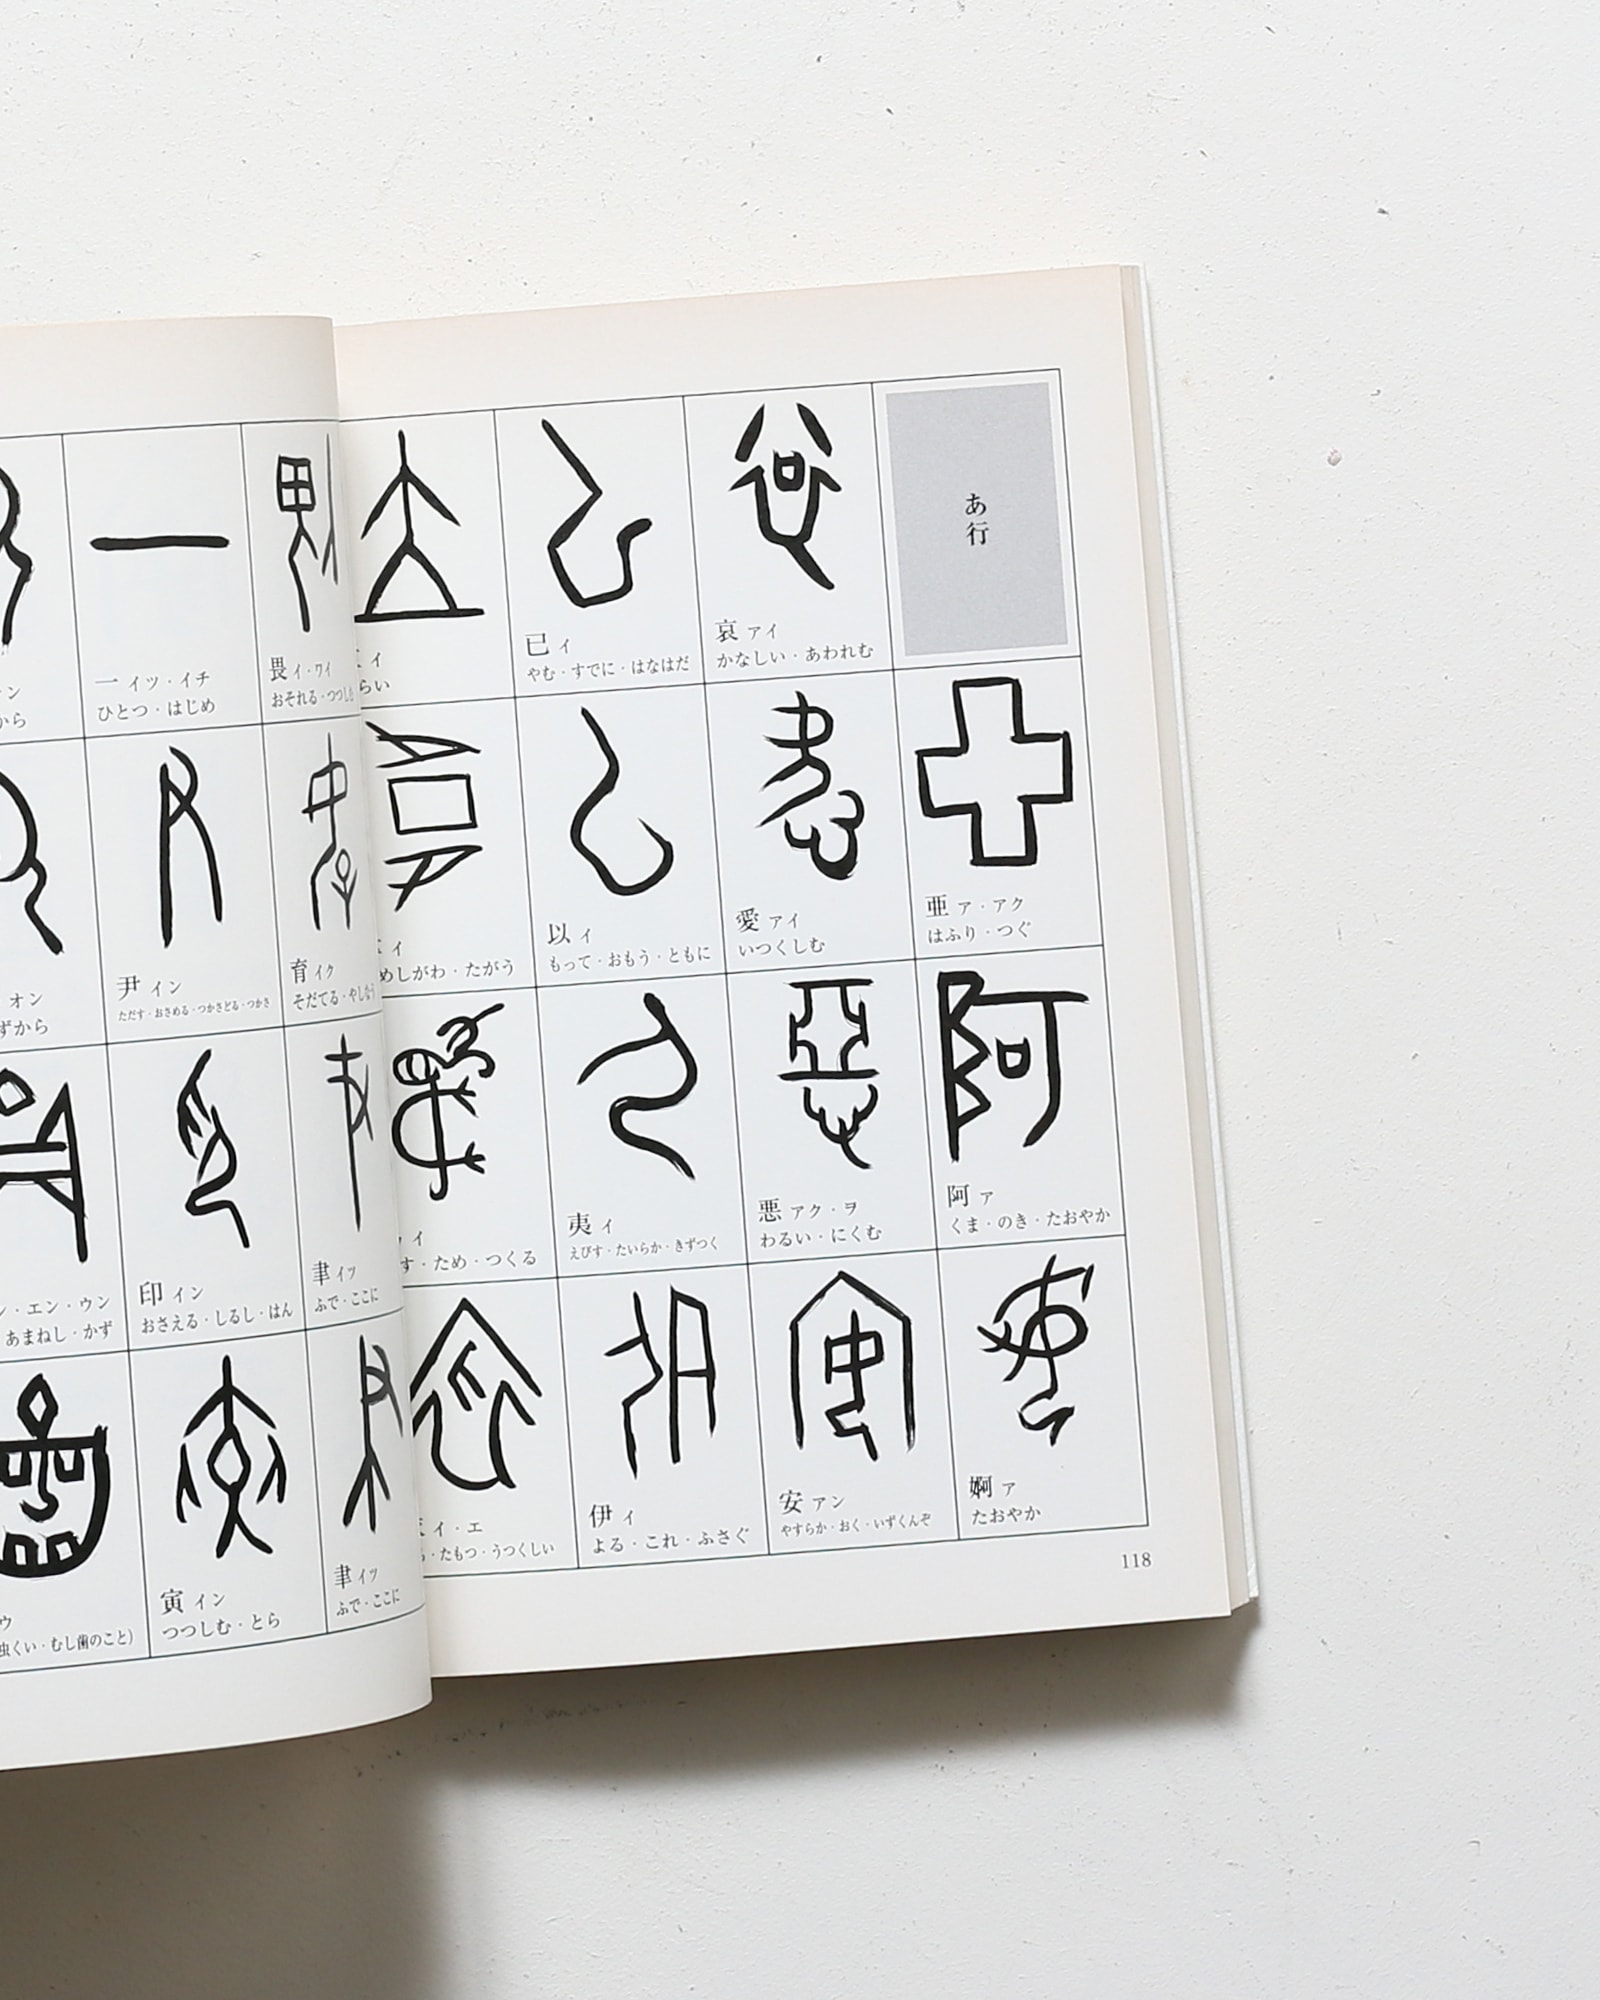 あ行
亜 ア・アク
はふり・つぐ
阿 ア
くま・のき・たおやか
婀 ア
たおやか
哀 アイ
かなしい・あわれむ
愛 アイ
いつくしむ
悪 アク・ヲ
わるい・にくむ
安 アン
やすらか・おく・いずくんぞ
已 イ
やむ・すでに・はなはだ
以 イ
もって・おもう・ともに
夷 イ
えびす・たいらか・きずつく
伊 イ
よる・これ・ふさぐ
イ
らい
イ
めしがわ・たがう
イ
す・ため・つくる
イ・エ
・たもつ・うつくしい
118
畏 イ・ワイ
おそれる・つつし
育 イク
そだてる・やしなう
聿 イツ
ふで・ここに
聿 イツ
ふで・ここに
一 イツ・イチ
ひとつ・はじめ
尹 イン
ただす・おさめる・つかさどる・つかさ
印 イン
おさえる・しるし・はん
寅 イン
つつしむ・とら
ン
から
オン
ずから
ン・エン・ウン
あまねし・かず
ウ
虫くい・むし歯のこと）